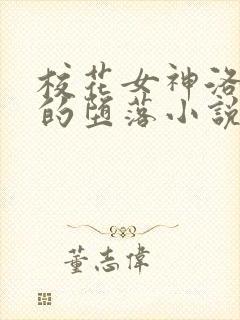 校花女神洛
的堕落小說
董志偉